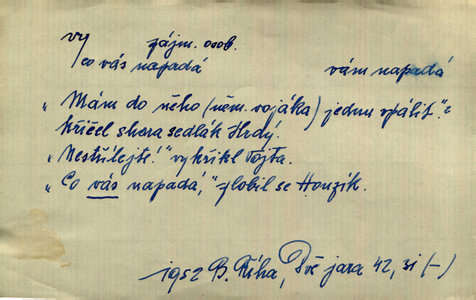 vy zájm. osob.
co vás napadá vám napadá
„Mám do něho (něm. vojáka) jednu vpálit“?
křičel shora sedlák Hrdý.
„Nestřílejte!“ vykřikl Vojta.
„Co vás napadá,“ zlobil se Honzík.
1952 B. Říha, Dvě jara 42, 31 (–)